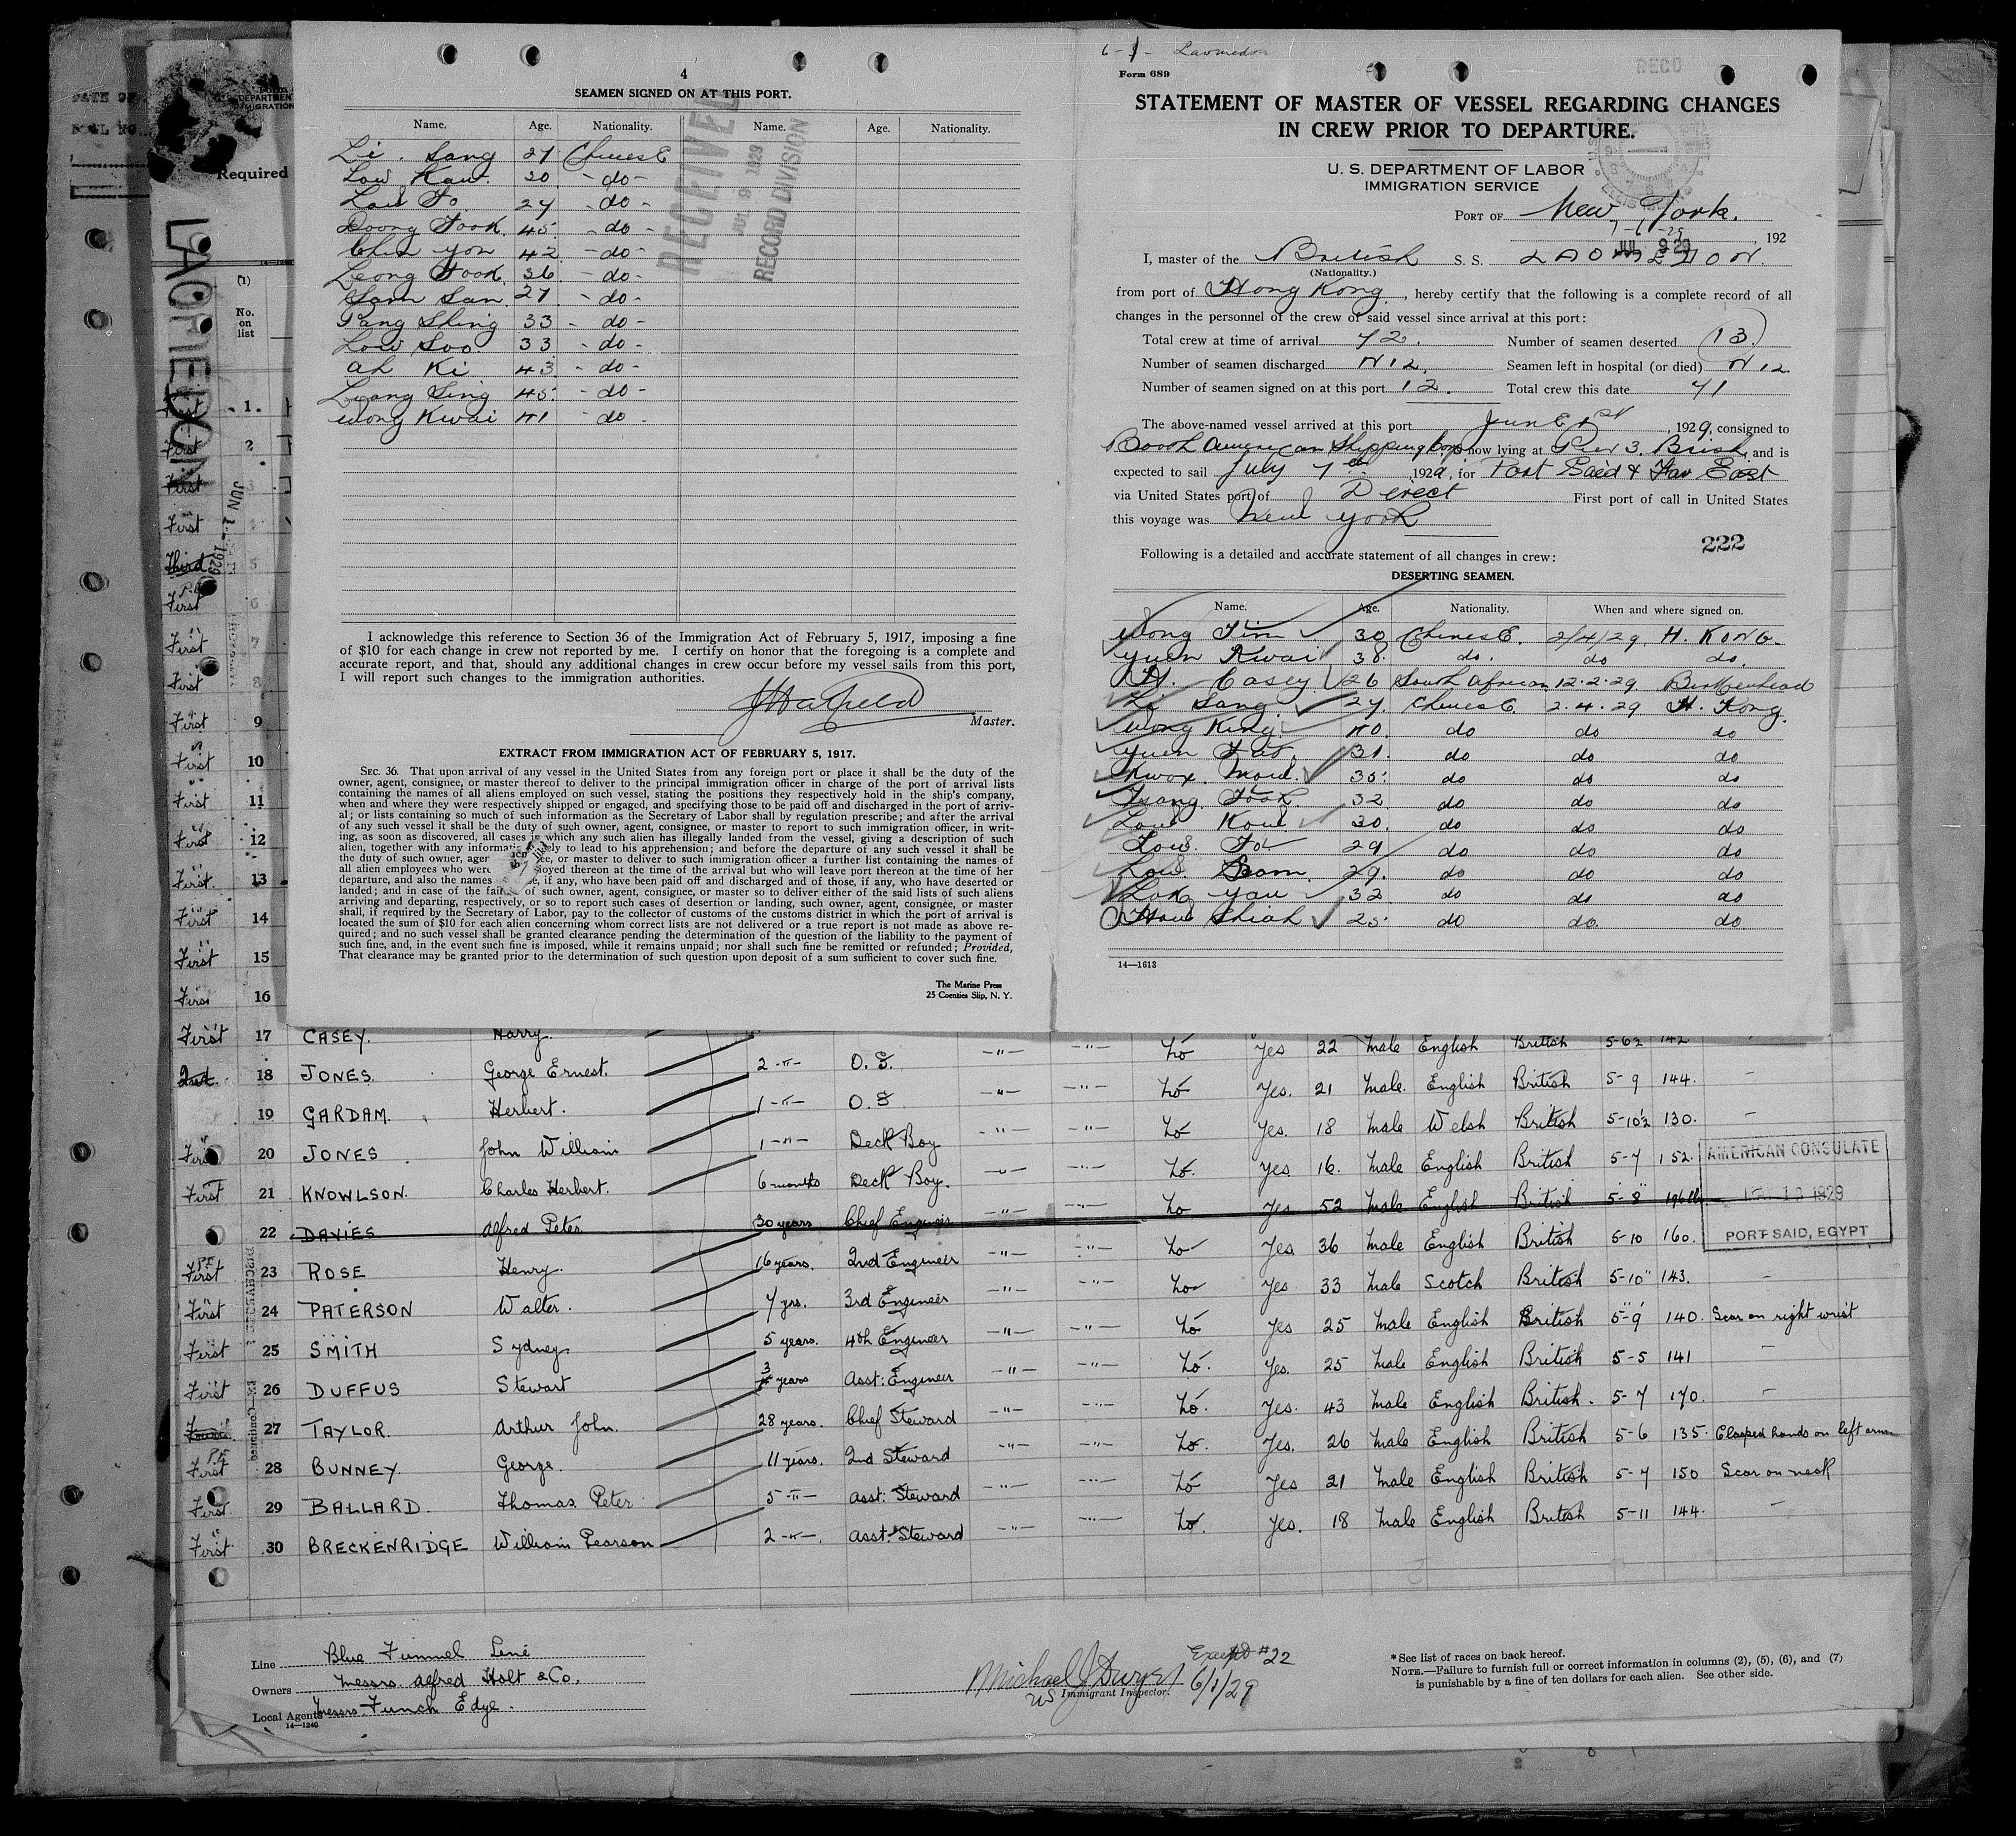 4
SEAMEN SIGNED ON AT THIS PORT.
Name. Age. Nationality. Name. Age. Nationality.
Li. Sang 27 ChinesE
Low Kau. 30 -do-
Low Fo. 29 -do-
Doong Fook. 45 -do-
Chu yon 42 -do-
Leong Fook. 36 -do-
Sam San. 27 -do-
Pang Shing 33 -do-
Low Soo. 33 -do-
Ah Ki 43 -do-
Leang Sing 45 -do-
Wong Kwai 41 do-
RECEIVED
JUL 9 1929
RECORD DIVISION
I acknowledge this reference to Section 36 of the Immigration Act of February 5, 1917, imposing a fine
of $10 for each change in crew not reported by me. I certify on honor that the foregoing is a complete and
accurate report, and that, should any additional changes in crew occur before my vessel sails from this port,
I will report such changes to the immigration authorities.
JHatfield
Master.
EXTRACT FROM IMMIGRATION ACT OF FEBRUARY 5, 1917.
SEC. 36. That upon arrival of any vessel in the United States from any foreign port or place it shall be the duty of the
owner, agent, consignee, or master thereof to deliver to the principal immigration officer in charge of the port of arrival lists
containing the names of all aliens employed on such vessel, stating the positions they respectively hold in the ship's company,
when and where they were respectively shipped or engaged, and specifying those to be paid off and discharged in the port of arriv-
al; or lists containing so much of such information as the Secretary of Labor shall by regulation prescribe; and after the arrival
of any such vessel it shall be the duty of such owner, agent, consignee, or master to report to such immigration officer, in writ-
ing, as soon as discovered, all cases in which any such alien has illegally landed from the vessel, giving a description of such
alien, together with any information likely to lead to his apprehension; and before the departure of any such vessel it shall be
the duty of such owner, ager ee, or master to deliver to such immigration officer a further list containing the names of
all alien employees who were ployed thereon at the time of the arrival but who will leave port thereon at the time of her
departure, and also the names e, if any, who have been paid off and discharged and of those, if any, who have deserted or
landed; and in case of the fail of such owner, agent, consignee, or master so to deliver either of the said lists of such aliens
arriving and departing, respectively, or so to report such cases of desertion or landing, such owner, agent, consignee, or master
shall, if required by the Secretary of Labor, pay to the collector of customs of the customs district in which the port of arrival is
located the sum of $10 for each alien concerning whom correct lists are not delivered or a true report is not made as above re-
quired; and no such vessel shall be granted clearance pending the determination of the question of the liability to the payment of
such fine, and, in the event such fine is imposed, while it remains unpaid; nor shall such fine be remitted or refunded; Provided,
That clearance may be granted prior to the determination of such question upon deposit of a sum sufficient to cover such fine.
The Marine Press
25 Coenties Slip, N. Y.
6-1- Laomedon
Form 689
RECO
STATEMENT OF MASTER OF VESSEL REGARDING CHANGES
IN CREW PRIOR TO DEPARTURE.
U. S. DEPARTMENT OF LABOR
IMMIGRATION SERVICE
PORT OF New York.
7-6-29
JUL 9 29, 192
I, master of the British S. S. LAOMEDON.
(Nationality.)
from port of Hong Kong, hereby certify that the following is a complete record of all
changes in the personnel of the crew of said vessel since arrival at this port:
Total crew at time of arrival 72. Number of seamen deserted 13.
Number of seamen discharged Nil. Seamen left in hospital (or died) Nil.
Number of seamen signed on at this port 12. Total crew this date 71
The above-named vessel arrived at this port JunE 1st, 1929, consigned to
Booth American Shipping Corp, now lying at Pier 3. Bush, and is
expected to sail July 7th 1929, for Port Saïd & Far East
via United States port of Direct First port of call in United States
this voyage was New York
222
Following is a detailed and accurate statement of all changes in crew:
DESERTING SEAMEN.
Name. Age. Nationality. When and where signed on.
Wong Tim 30 ChinesE. 2/4/29 H. KONG.
Yuen Kwai 38. do. do do.
H. Casey 26 South African 12.2.29 Birkenhead
Li Sang. 27. ChinesE. 2.4.29 H. Kong.
Wong King 40. do do do
Yuen Fat. 31. do do do
Kwok. 35. do do do
Tsang Fook 32 do do do
Low Kow. 30. do do do
Low. Fo 29 do do do
Low Sam 29. do do do
Lok yau 32 do do do
How Shiah 25. do do. do
14—1613
DATE OF
Required
LAOMEDON
JUN 1 - 1929
(1)
No.
on
list
First 1
First 2
First 3
First 4
Third 5
P.E.
First 6
First 7
First 8
First 9
First 10
First 11
First 12
First. 13
First 14
First 15
First 16
First 17 CASEY. Harry. Lo Yes 22 Male English British 5-6½ 142.
2nd. 18 JONES. George Ernest. 2 -"- O. S. -"- -"- Lo Yes. 21 Male. English British 5-9 144. -
19 GARDAM. Herbert. 1 -"- O. S -"- -"- Lo Yes. 18 Male Welsh British 5-10½ 130. -
First 20 JONES John William 1 -"- Deck Boy -"- -"- Lo. Yes 16. Male English British 5-7 152.
First 21 KNOWLSON. Charles Herbert. 6 months Deck Boy. -"- -"- Lo Yes 52 Male English British 5-8" 196lb
22 DAVIES Alfred Peter 30 years Chief Engineer -"- -"- Lo Yes. 36 Male English British 5-10 160.
P.E.
First 23 ROSE Henry. 16 years. 2nd Engineer -"- -"- Lo Yes 33 Male Scotch British 5-10" 143. -
First 24 PATERSON Walter. 7 yrs. 3rd Engineer -"- -"- Lo Yes 25 Male English British 5-9 140. Scar on right wrist
First 25 SMITH Sydney 5 years. 4th Engineer -"- -"- Lo. Yes. 25 Male English British 5-5 141 -
First 26 DUFFUS Stewart 3 years Asst: Engineer -"- -"- Lo. Yes. 43 Male English British. 5-7 170. -
27 TAYLOR. Arthur John. 28 years. Chief Steward -"- -"- Lo. Yes. 26 Male English British 5-6 135. Clasped hands on left arm
P.E.
First 28 BUNNEY. George. 11 years. 2nd Steward -"- -"- Lo Yes 21 Male English British 5-7 150 Scar on neck
First. 29 BALLARD. Thomas Peter 5 -"- Asst: Steward -"- -"- Lo. Yes. 18 Male English British 5-11 144. -
First 30 BRECKENRIDGE William Pearson 2 -"-. Asst: Steward -"- -"-
AMERICAN CONSULATE
1929
PORT SAID, EGYPT
Line Blue Funnel Line
Owners Messrs. Alfred Holt & Co.
Local Agents Messrs. Funch Edye.
14—1240
Except #22
Michael J Dwyer 6/1/29
US Immigrant Inspector.
* See list of races on back hereof.
NOTE.—Failure to furnish full or correct information in columns (2), (5), (6), and (7)
is punishable by a fine of ten dollars for each alien. See other side.